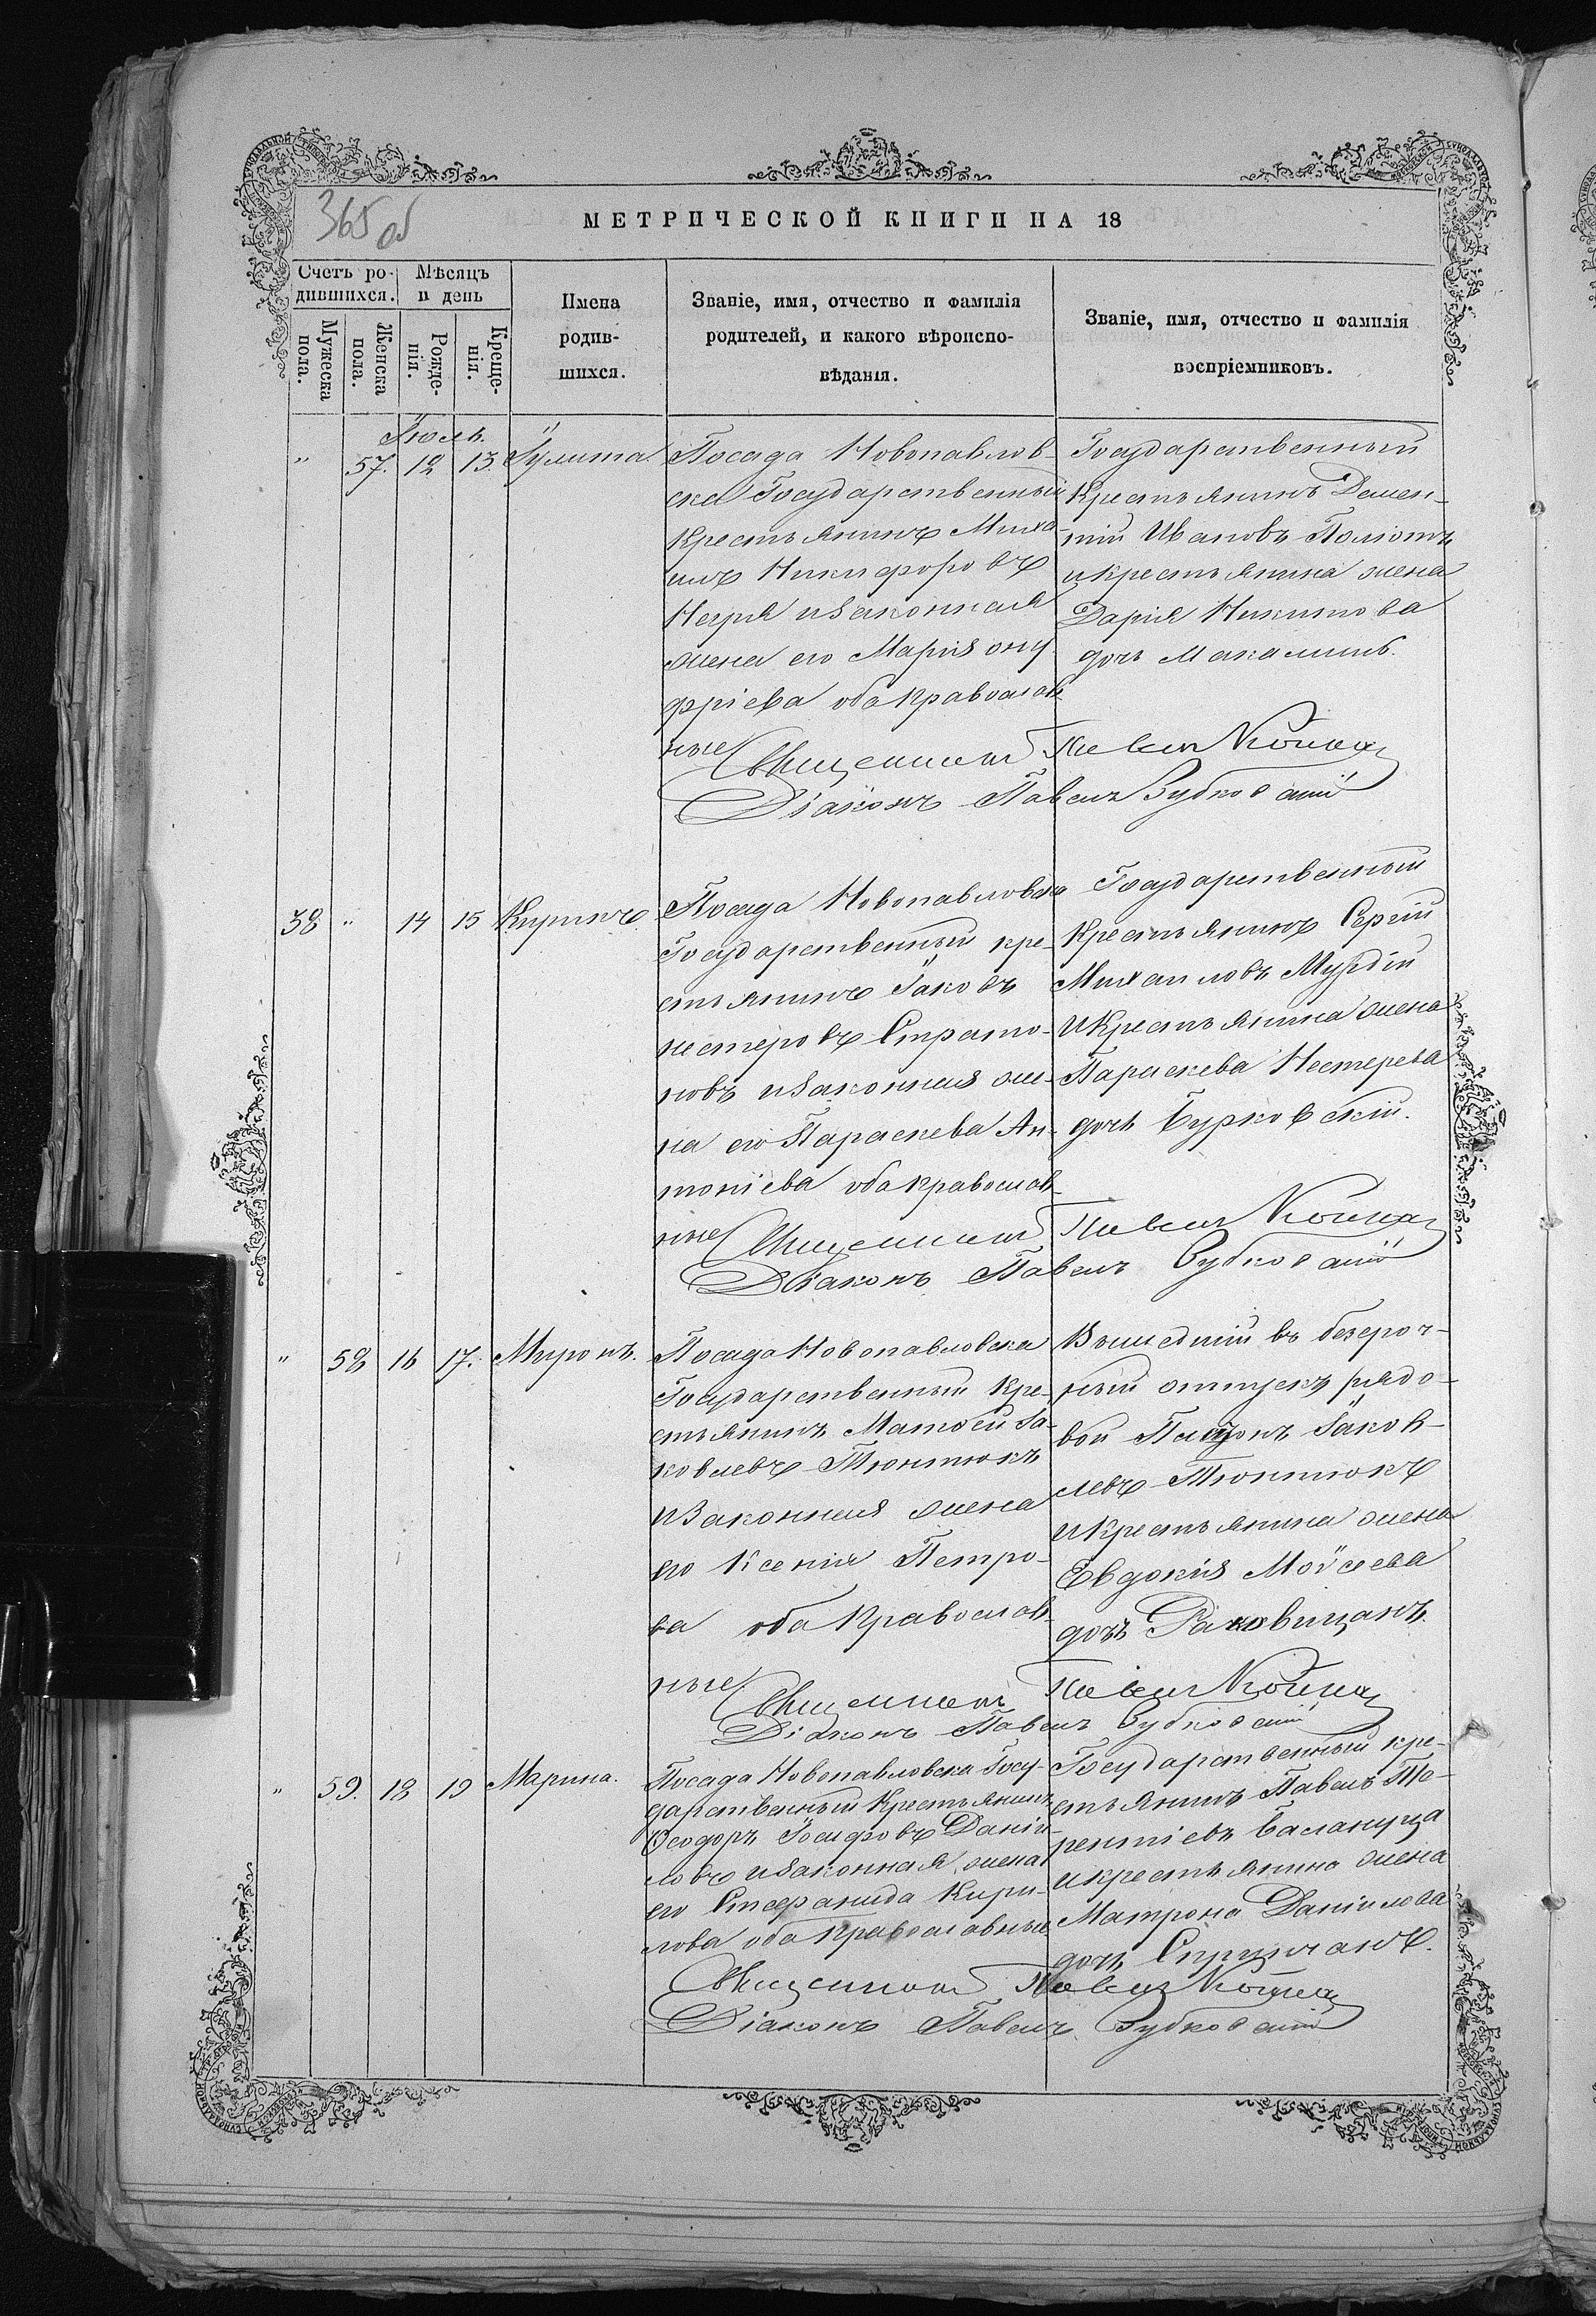 365 об
МЕТРИЧЕСКОЙ КНИГИ НА 18
Счетъ ро-
дившихся.
Мѣсяцъ
и день
Мужеска
пола.
Женска
пола.
Рожде-
нія.
Креще-
нія.
Имена
родив-
шихся.
Званіе, имя, отчество и фамилія
родителей, и какого вѣроиспо-
вѣданія.
Званіе, имя, отчество и фамилія
воспріемниковъ.
Іюль.
" 57. 12 13 Іулита.
Посада Новопавлов-
ска Государственный
Крестьянинъ Миха-
илъ Никифоровъ
Негря изаконная
жена его Марія Ону-
фріева оба православ-
ные
Государственный
Крестьянинъ Демен-
тій Ивановъ
икрестьянина жена
Дарія Никитова
дочь
Священникъ Павелъ
Діаконъ Павелъ Зубковскій
38 " 14 15 Кирикъ.
Посада Новопавловска
Государственный кре-
стьянинъ Іаковъ
Нестеровъ Страто-
новъ изаконная же-
на его Параскева Ан-
тоніева оба православ-
ные
Государственный
Крестьянинъ Сергій
Михаиловъ Мурзій
иКрестьянина жена
Параскева Нестерева
дочь Бурковскій.
Священникъ Павелъ
Діаконъ Павелъ Зубковскій
" 58 16 17. Миронъ.
Посада Новопавловска
Государственный Кре-
стьянинъ Матѳей Іа-
ковлевъ Тюнтюкъ
иЗаконная жена
его Ксенія Петро-
ва оба Православ-
ные
Вышедшій въ безсроч-
ный отпускъ рядо-
вой Іаков-
левъ Тюнтюкъ
икрестьянина жена
Евдокія Мойсеева
дочь Раковицанъ.
Священникъ Павелъ
Діаконъ Павелъ Зубковскій
" 59. 18 19 Марина.
Посада Новопавловска Госу-
дарственный Крестьянинъ
Ѳеодоръ Іосифовъ Даніи-
ловъ изаконная жена
его Стефанида Кири-
лова оба православные
Государственный кре-
стьянинъ Павелъ Те-
рентіевъ Балануца
икрестьянина жена
Матрона Даніилова
дочь
Священникъ Павелъ
Діаконъ Павелъ Зубковскій